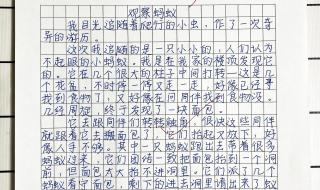 观察蚂蚁
我目光追随着爬行的小虫，作了一次奇
异的游历。
这次我追随的是一只小小的，人们认为
不起眼的小蚂蚁。我是在我家的楼顶发现它
的。它在几个很大的柱子中间打转—这是几
个花盆，不时停一停又走一走，好像已经寻
找到食物了，又好像在问同伴找到食物没。
几经周旋，终于发现了一块面包。
它去跟同伴们转转触角。很快这些同伴
就跟着它去搬面包了，它们抬起又放下，好
像人手不够。其中一只蚂蚁跑出去带着很多
蚂蚁过来，它们团结一致把面包抬到一个洞
前，但面包太大抬不进洞里。它们派了几个
蚂蚁看守面包，剩下的进去洞里请来了蚁